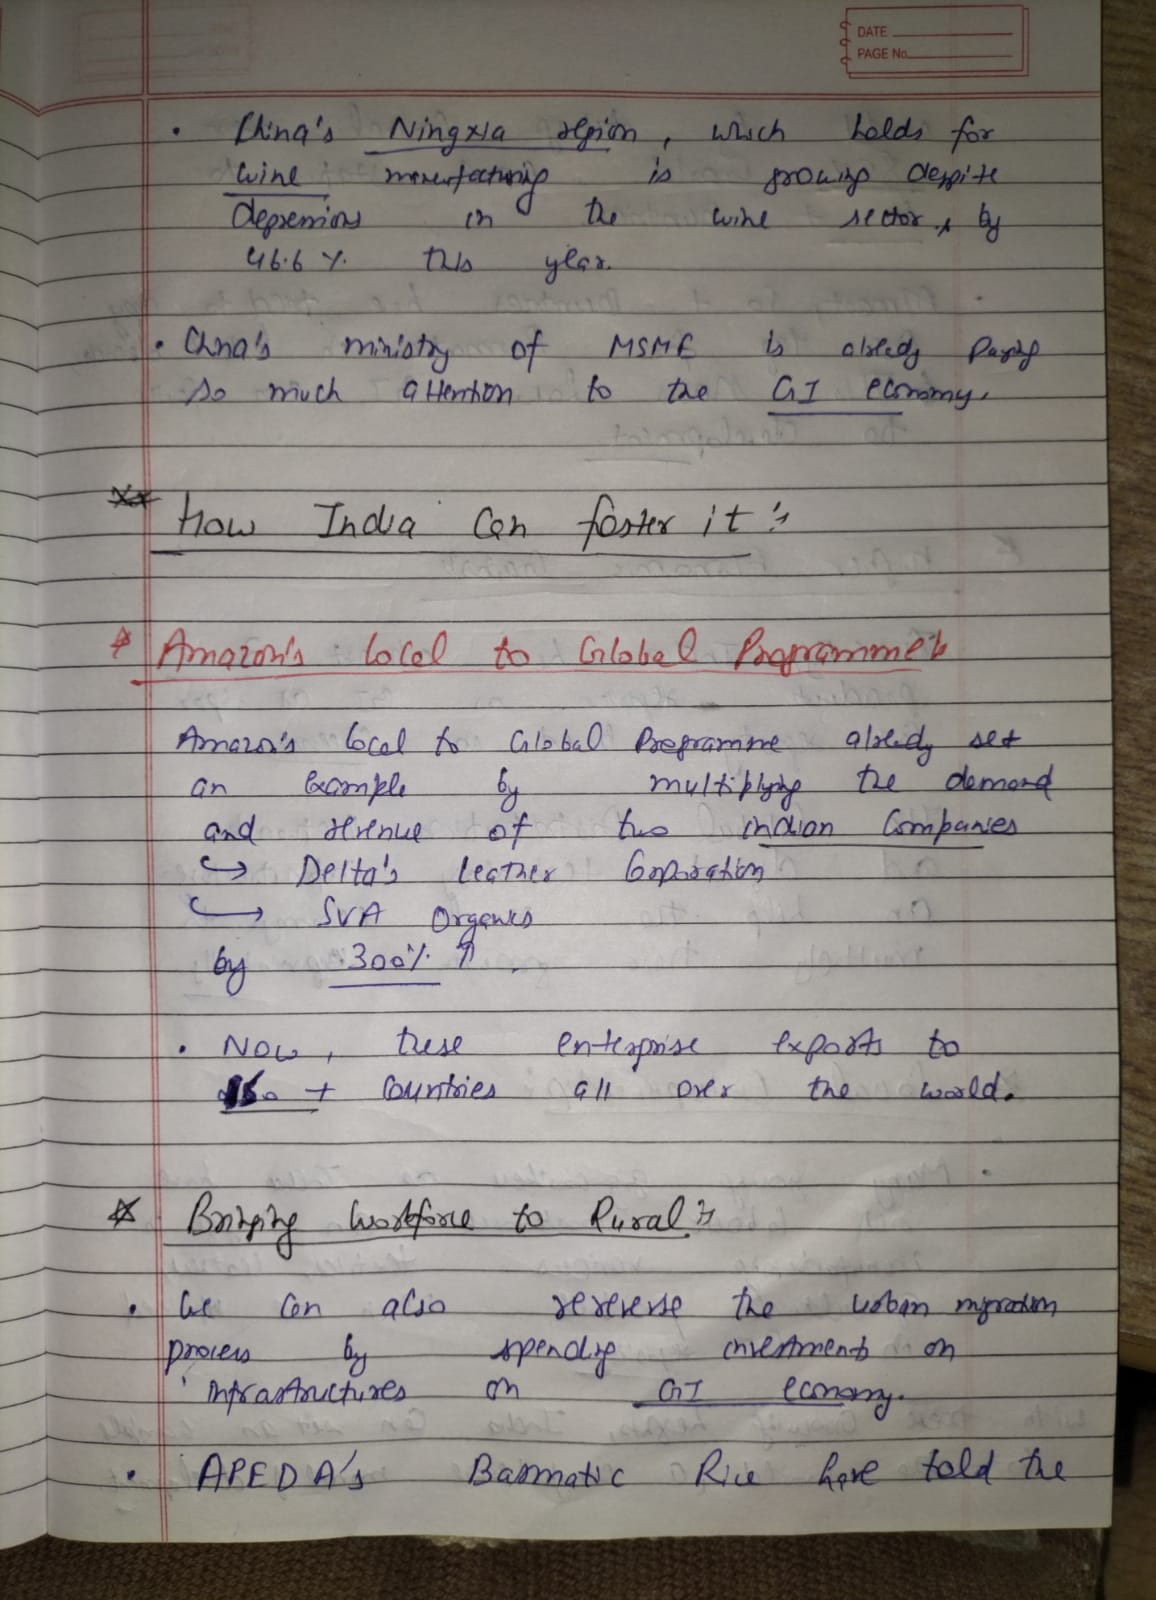 DATE
PAGE No.
• China's Ningxia region, which holds for
wine manufacturing is growing despite
depressions in the wine sector, by
46.6 %. this year.
• China's ministry of MSME is already paying
so much attention to the GI economy.
How India Can foster it :
* Amazon's Local to Global Programme :
Amazon's local to Global Programme already set
an example by multiplying the demand
and revenue of two indian Companies
↪ Delta's leather Corporation
↪ SVA Organics
by 300% ↑
• Now, these enterprise exports to
+ Countries all over the world.
* Bringing workforce to Rural :
• We Can also rereverse the Urban migration
process by spending investments on
infrastructures on GI economy.
• APEDA's Basmatic Rice have told the